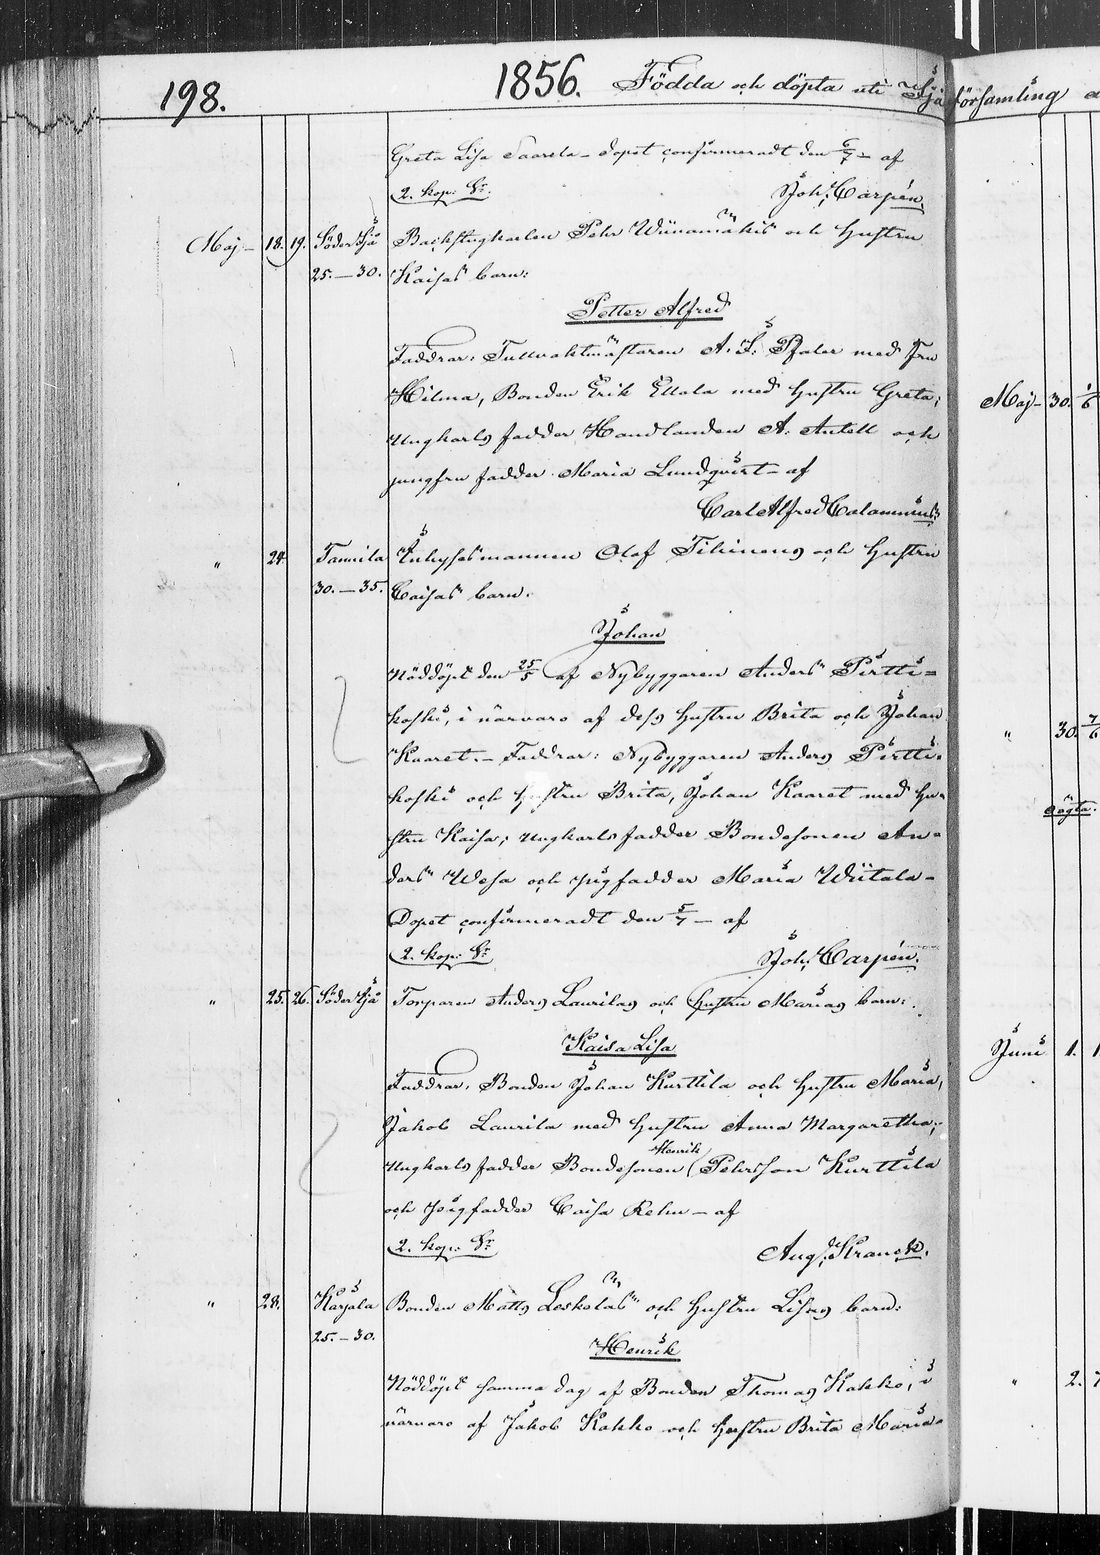 198.
1856. Födda och döpta uti Ijo församling
Greta Lisa Saarela – Dopet confirmeradt den 6/7 – af
2. kop. Sr.
Joh. Carpén.
Maj – 18. 19. Söder Ijå Backstugkarlen Pehr Wiinamäkis och hustru
25. – 30. Kaisas barn:
Petter Alfred
Faddrar: Tullvaktmästaren A. F. Pfaler med Fru
Hilma, Bonden Erik Ellala med hustru Greta;
ungkarls fadder Handlanden A. Antell och
jungfru fadder Maria Lundqvist – af
Carl Alfred Calamnius.
" 24. Tannila Inhysesmannen Olof Tihinens och hustru
30. – 35. Caisas barn.
Johan
Nöddöpt den 25/5 af Nybyggaren Anders Pirtti=
koski, i närvaro af dess hustru Brita och Johan
Kaaret. – Faddrar: Nybyggaren Anders Pirtti=
koski och hustru Brita, Johan Kaaret med hu=
stru Kaisa; ungkarls fadder Bondesonen An=
ders Wesa och pigfadder Maria Wiitala –
Dopet confirmeradt den 5/7 – af
2. kop. Sr.
Joh. Carpén.
" 25. 26. Söder Ijå Torparen Anders Laurilas och hustru Marias barn:
Kaisa Lisa
Faddrar: Bonden Johan Kurttila och hustru Maria,
Jakob Laurila med hustru Anna Margaretha;
ungkarls fadder Bondesonen Henrik Pehrsson Kurttila
och pigfadder Caisa Rehn – af
2. kop. Sr.
Aug. Kranck.
" 28. Karjala Bonden Matts Leskeläs och hustru Lisas barn:
25. – 30.
Henrik
Nöddöpt samma dag af Bonden Thomas Kakko, i
närvaro af Jakob Kakko och hustru Brita Maria
Maj – 30. 1/6
" 30. 7/6
Juni 1. 1
" 2. 7